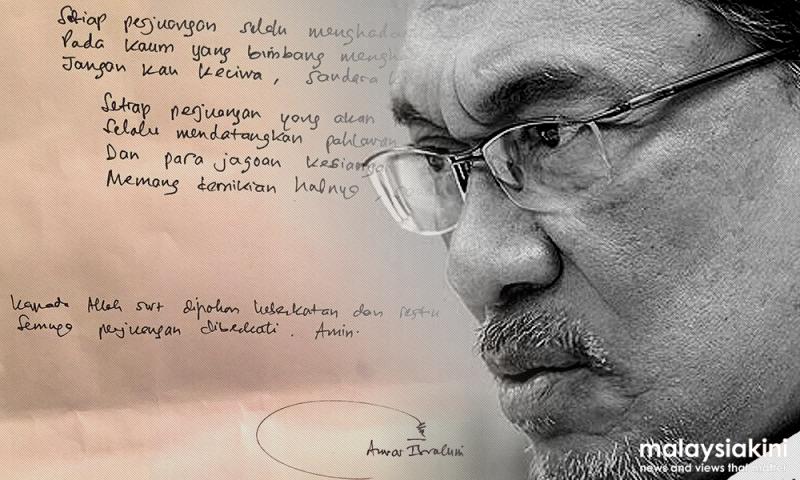 Setiap perjuangan selalu
Pada kaum yang bimbang
Jangan kau keciwa, Sandera
Setiap perjuangan yang akan
Selalu mendatangkan pahlawan
Dan para jagoan kesiangan
Memang demikian halnya,
Kepada Allah swt dipohon keberkatan dan restu
Semoga perjuangan diberkati. Amin.
Anwar Ibrahim
malaysiakini
news and views that matter